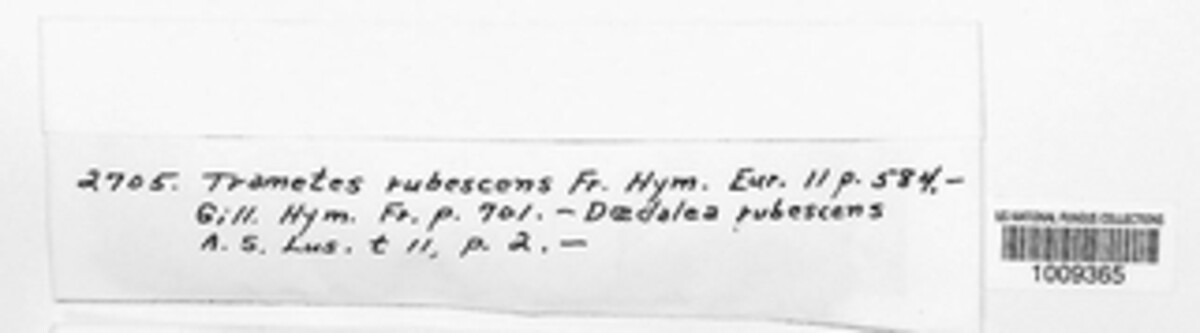 2705. Trametes rubescens Fr. Hym. Eur. II p. 584.—
Gill. Hym. Fr. p. 701. — Dædalea rubescens
A. S. Lus. t 11, p. 2. —
US NATIONAL FUNGUS COLLECTIONS
1009365